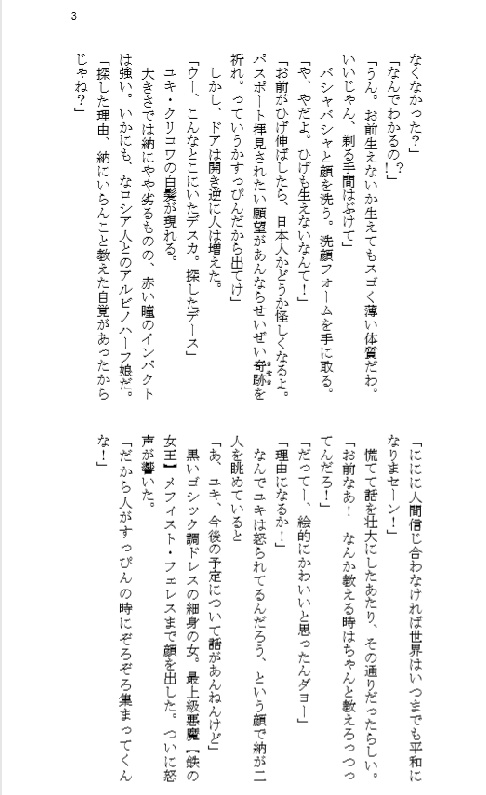 3
なくなかった？」
「なんでわかるの？！」
「うん。お前生えないか生えてもスゴく薄い体質だわ。
いいじゃん、剃る手間はぶけて」
バシャバシャと顔を洗う。洗顔フォームを手に取る。
「や、やだよ。ひげも生えないなんて！」
「お前がひげ伸ばしたら、日本人かどうか怪しくなるよ。
パスポート拝見されたい願望があんならせいぜい奇跡を
祈れ。っていうかすっぴんだから出てけ」
しかし、ドアは開き逆に人は増えた。
「ウー、こんなとこにいたデスカ。探したデース」
ユキ・クリコワの白髪が現れる。
大きさでは納にやや劣るものの、赤い瞳のインパクト
は強い。いかにも、なコシア人とのアルビノハーフ娘だ。
「探した理由、納にいらんこと教えた自覚があったから
じゃね？」
「ににに人間信じ合わなければ世界はいつまでも平和に
なりませーン！」
慌てて話を壮大にしたあたり、その通りだったらしい。
「お前なあ！　なんか教える時はちゃんと教えろっつっ
てんだろ！」
「だってー、絵的にかわいいと思ったんダヨー」
「理由になるか！」
なんでユキは怒られてるんだろう、という顔で納が二
人を眺めていると
「あ、ユキ、今後の予定について話があんねんけど」
黒いゴシック調ドレスの細身の女。最上級悪魔【鉄の
女王】メフィスト・フェレスまで顔を出した。ついに怒
声が響いた。
「だから人がすっぴんの時にぞろぞろ集まってくん
な！」